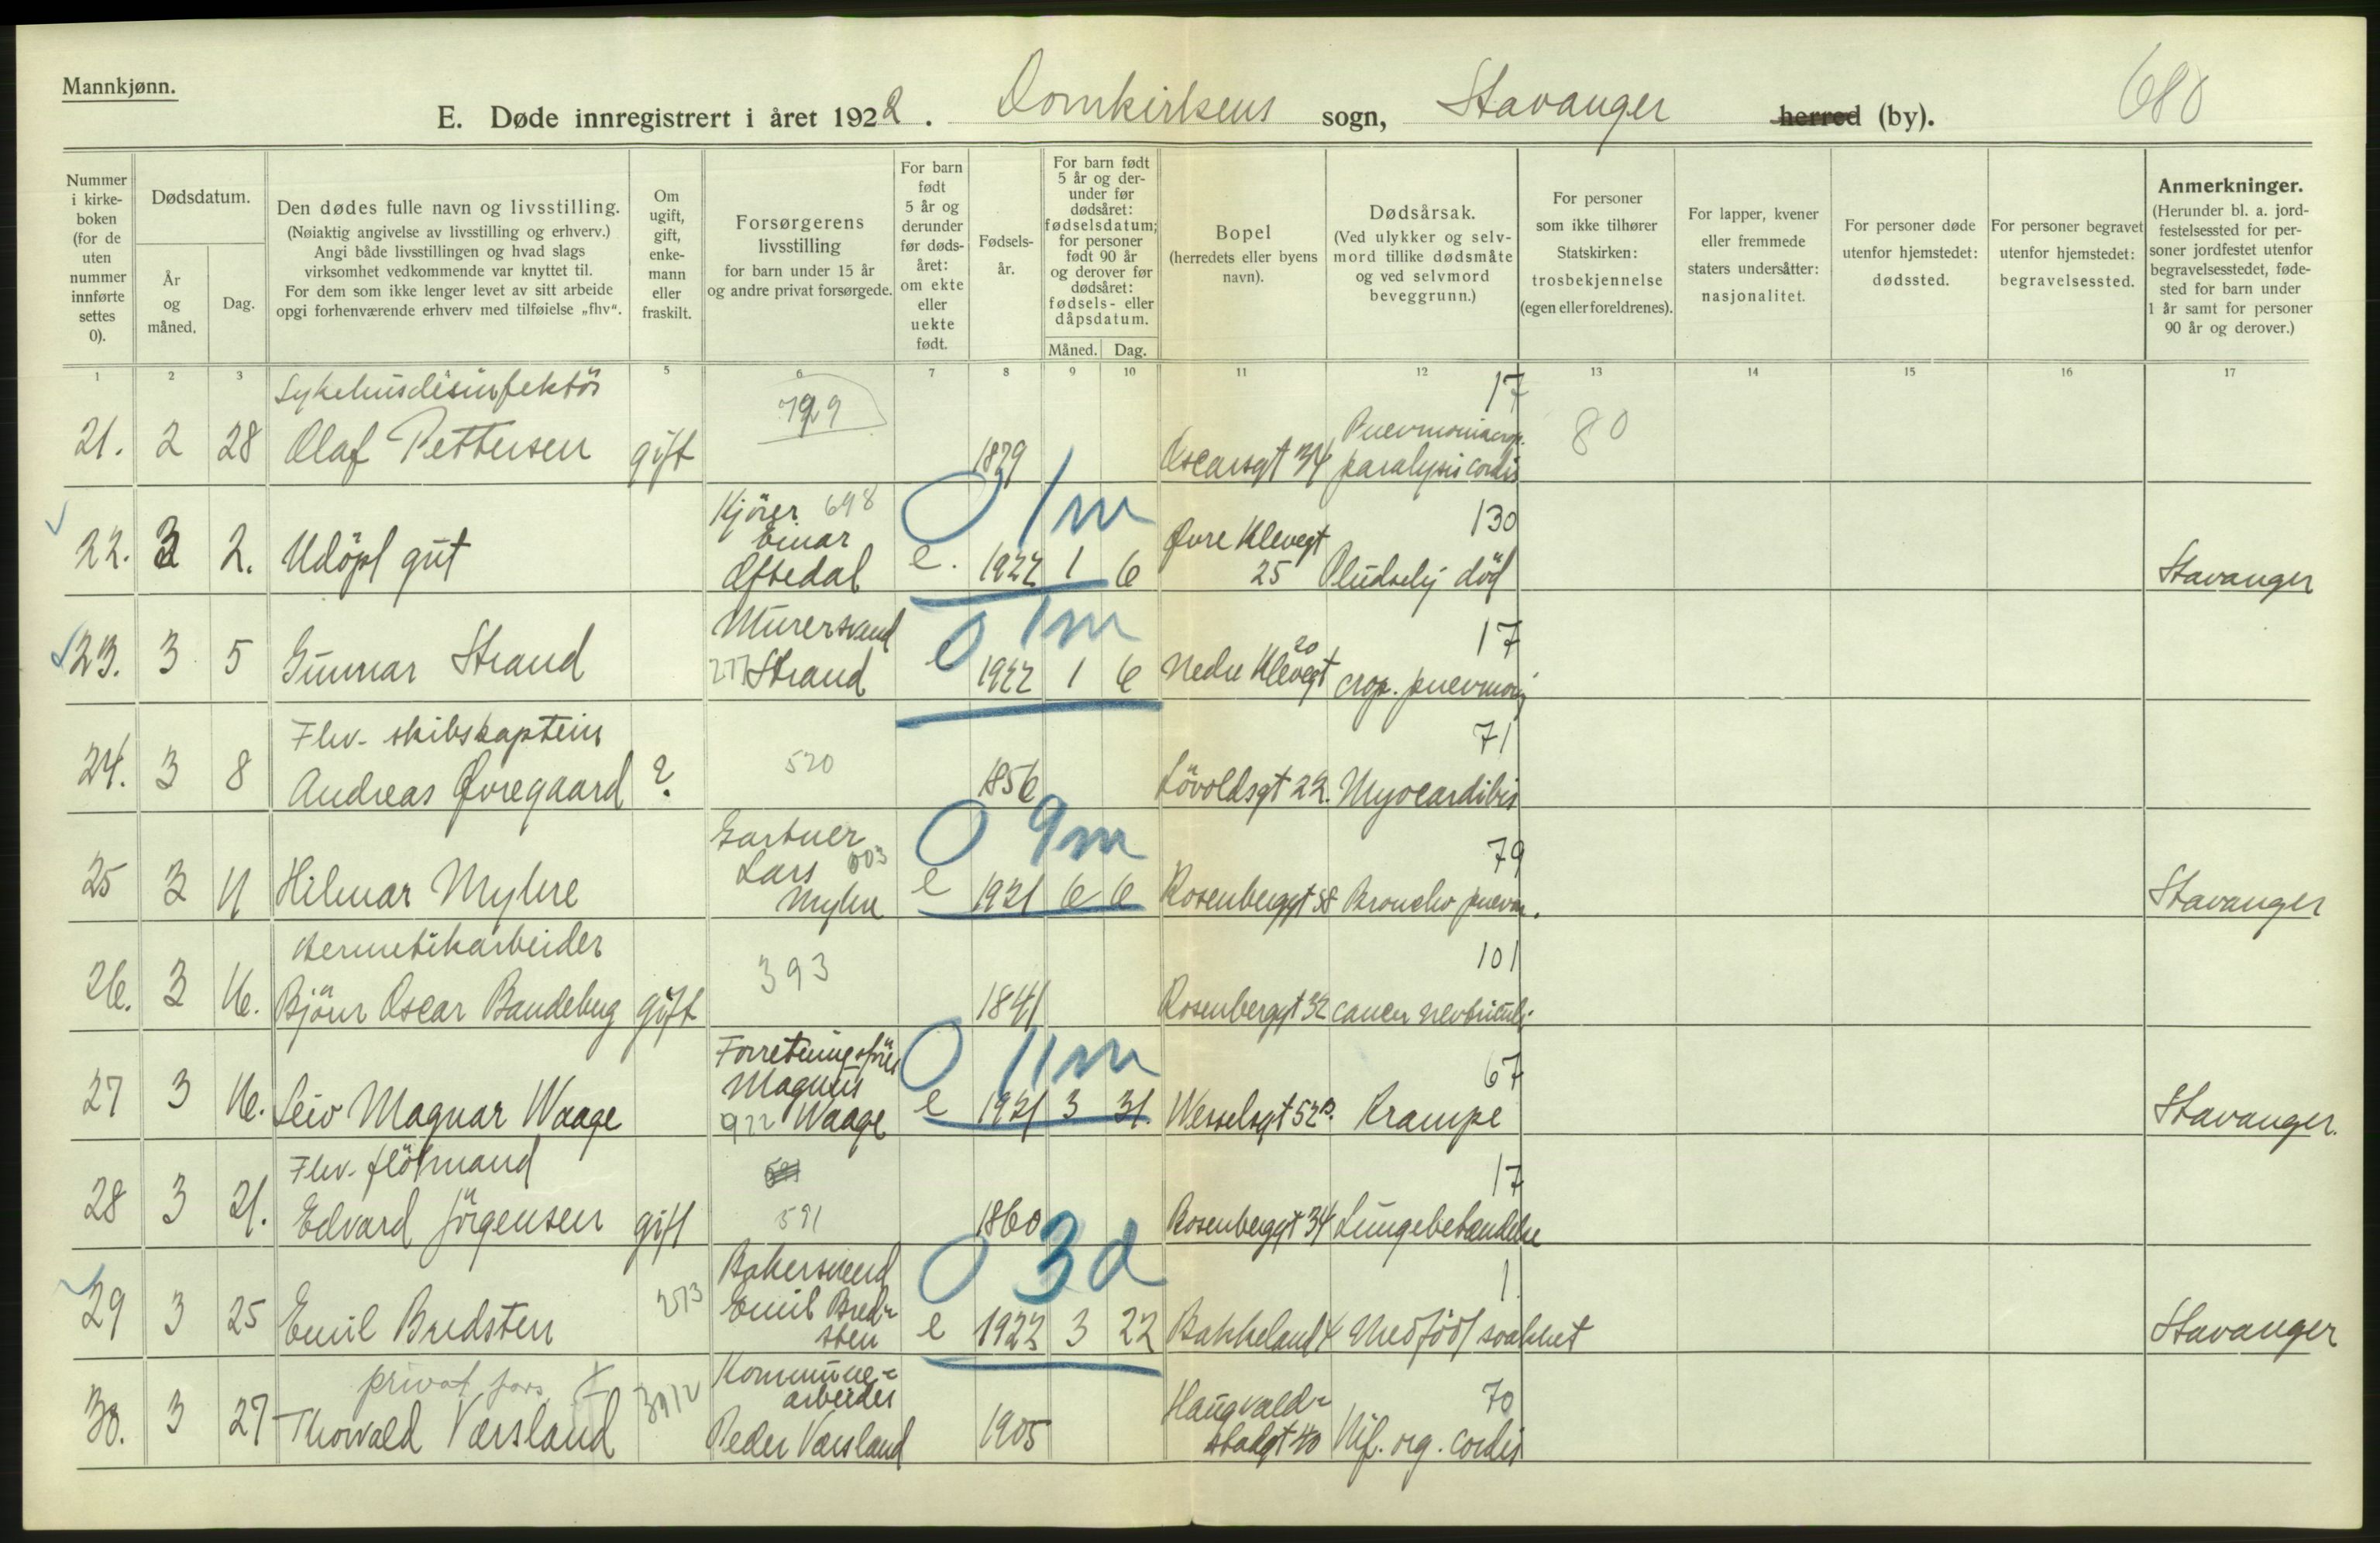 Mannkjønn.
E. Døde innregistrert i året 1922. Domkirkens sogn, Stavanger herred (by).
680
Nummer i kirkeboken (for de uten nummer innførte settes 0).
Dødsdatum.
År og måned.
Dag.
Den dødes fulle navn og livsstilling.
(Nøiaktig angivelse av livsstilling og erhverv.)
Angi både livsstillingen og hvad slags
virksomhet vedkommende var knyttet til.
For dem som ikke lenger levet av sitt arbeide
opgi forhenværende erhverv med tilføielse „fhv“.
Om ugift, gift, enkemann eller fraskilt.
Forsørgerens livsstilling
for barn under 15 år
og andre privat forsørgede.
For barn født 5 år og derunder før dødsåret: om ekte eller uekte født.
Fødselsår.
For barn født 5 år og derunder før dødsåret: fødselsdatum; for personer født 90 år og derover før dødsåret: fødsels- eller dåpsdatum.
Måned. Dag.
Bopel
(herredets eller byens navn).
Dødsårsak.
(Ved ulykker og selvmord tillike dødsmåte og ved selvmord beveggrunn.)
For personer som ikke tilhører Statskirken: trosbekjennelse (egen eller foreldrenes).
For lapper, kvener eller fremmede staters undersåtter: nasjonalitet.
For personer døde utenfor hjemstedet: dødssted.
For personer begravet utenfor hjemstedet: begravelsessted.
Anmerkninger.
(Herunder bl. a. jordfestelsessted for personer jordfestet utenfor begravelsesstedet, fødested for barn under 1 år samt for personer 90 år og derover.)
1 2 3 5 6 7 8 9 10 11 12 13 14 15 16 17
Sykehusdesinfektör 17
21. 2 28 Olaf Pettersen gift 1879 Oscarsgt 34 paralysis cordis 80
Kjörer 698 0 1m 130
22. 3 2. Udöpt gut Einar Oftedal e. 1922 1 6 Øvre Klevegt 25 Pludselig död Stavanger
Murersvend 0 1m 17
23. 3 5 Gunnar Strand 277 Strand e 1922 1 6 Nedre Klevegt 20 crop. pnevmoni
Fhv. skibskaptein 71
24. 3 8 Andreas Øvregaard ? 520 1856 Lövoldsgt 22. Myocarditis
Gartner 0 9m 79
25 3 11 Hilmar Myhre Lars Myhre e 1921 6 6 Rosenberggt 38 Broncho pnevm. Stavanger
Hermetikarbeider 393 101
26. 3 16. Björn Oscar gift 1841 Rosenberggt 32 cancer ventriculi
Forretningsförer 0 11m 67
27 3 16. Leiv Magnar Waage Magnus 922 Waage e 1921 3 31. Wesselsgt 52B. Krampe Stavanger.
Fhv. flötmand 17
28 3 21. Edvard Jörgensen gift 591 1860 Rosenberggt 34 Lungebetændelse
Bakersvend 0 3d 1
29 3 25 Emil Bredsten 273 Emil Bredsten e 1922 3 22 Bakkeland 4 Medfödt svakhet Stavanger
privat fors. Kommunearbeider 70
30. 3 27 Thorvald Varsland Peder Varsland 1905 Haugvaldstadgt 40 Vit. org. cordis